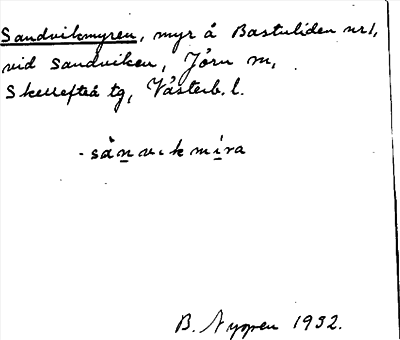 Sandvikmyren, myr å Bastuliden nr1,
vid Sandviken, Jörn sn,
Skellefteå tg, Västerb. l.
B. Nygren 1932.